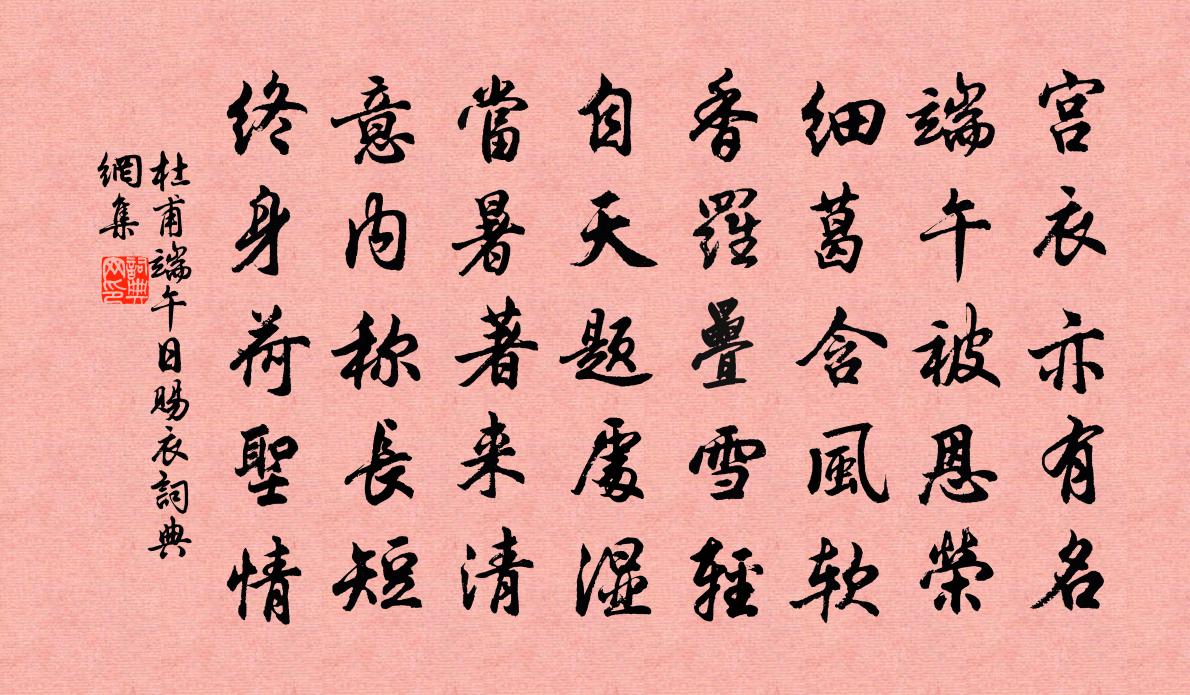 宫衣亦有名
端午被恩榮
細葛含風軟
香羅疊雪輕
自天題處濕
當暑著来清
意内称長短
终身荷聖情
杜甫端午日賜衣詞典
網集
詞典
网印